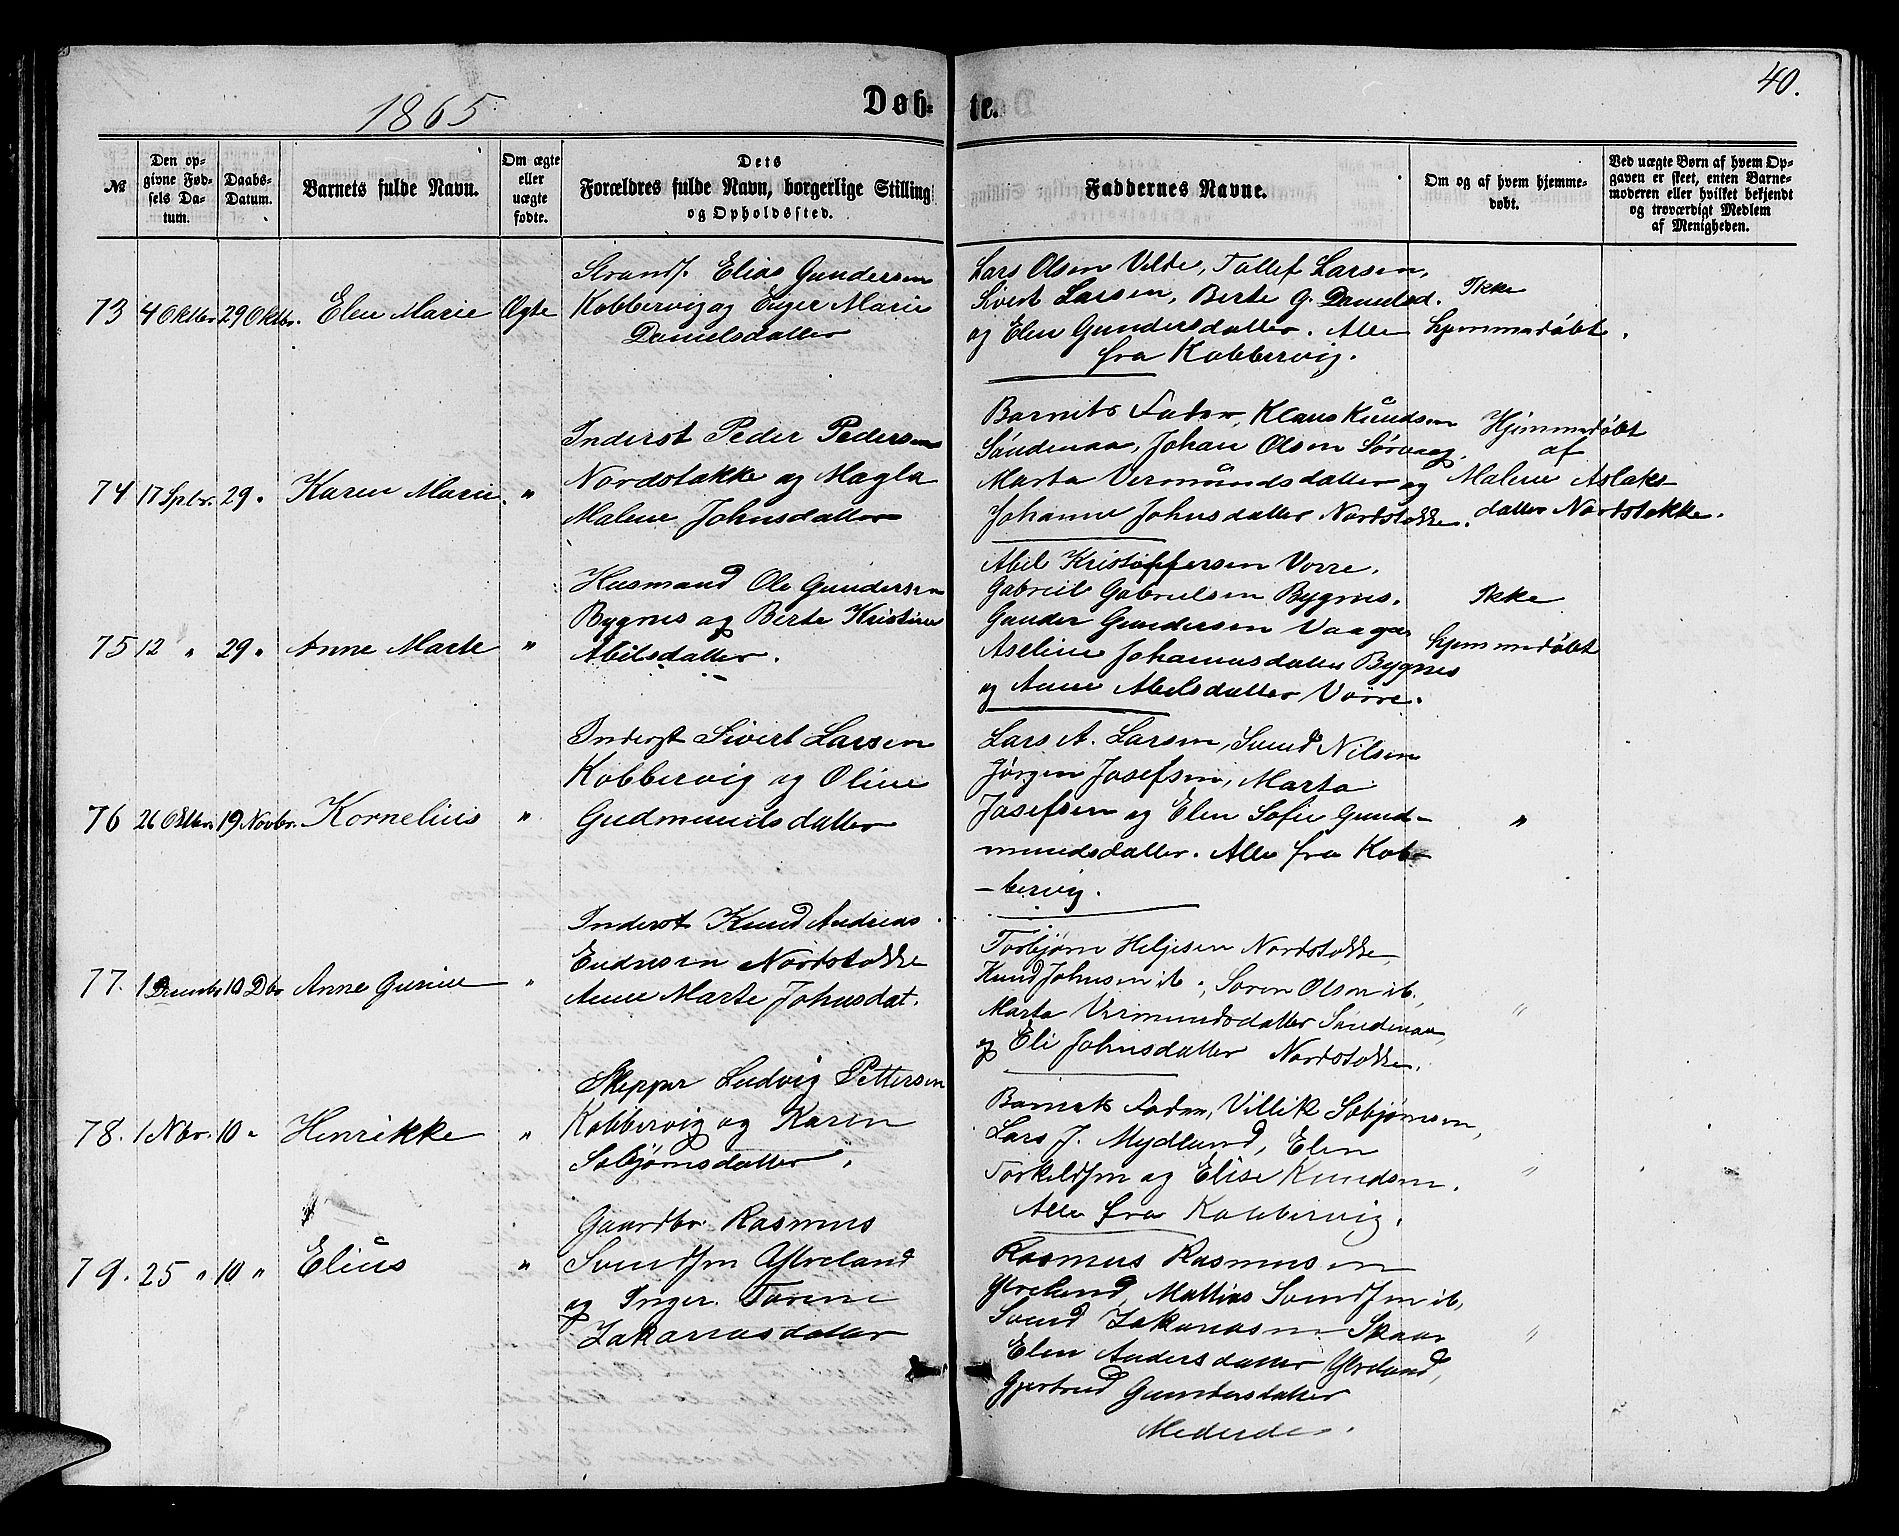 40.
1865
Døb-
te.
№
Den op-
givne Fød-
sels Da-
tum.
Daabs-
Datum.
Barnets fulde Navn.
Om ægte
eller
uægte
fødte.
Dets
Forældres fulde Navn, borgerlige Stilling
og Opholdssted.
Faddernes Navne.
Om og af hvem hjemme-
døbt.
Ved uægte Børn af hvem Op-
gaven er skeet, enten Barne-
moderen eller hvilket bekjendt
og troværdigt Medlem
af Menigheden.
73
4 Oktbr.
29 Oktbr.
Elen Marie
Ægte
Strands. Elias Gundersen
Kobbervig og Inger Marie
Danielsdatter
Lars Olsen Velde, Tollef Larsen,
Sivert Larsen, Berte G. Danielsd.
og Elen Gundersdatter. Alle
fra Kobbervig.
Ikke
hjemmedøbt.
74
17 Sptbr.
29 "
Karen Marie
"
Inderst Peder Pedersen
Nordstokke og Magla
Malene Johnsdatter
Barnets Fader, Klaus Knudsen
Søndenaa, Johan Olsen Sørvaag,
Marta Vermundsdatter og
Johanne Johnsdatter Nordstokke.
Hjemmedøbt
af
Malene Aslaks-
datter Nordstokke.
75
12 "
29 "
Anne Marte
"
Husmand Ole Gundersen
Bygnes og Berte Kristine
Abelsdatter.
Abel Kristoffersen Vorre,
Gabriel Gabrielsen Bygnes.
Gunder Gundersen Vaage
Aseline Johannesdatter Bygnes
og Anne Abelsdatter Vorre.
Ikke
hjemmedøbt
76
26 Oktbr.
19 Novbr.
Kornelius
"
Inderst Sivert Larsen
Kobbervig og Oline
Gudmundsdatter
Lars A. Larsen, Svend Nilsen
Jørgen Josefsen, Marta
Josefsen og Elen Sofie Gund-
mundsdatter. Alle fra Kob-
-bervig.
"
77.
1 Decembr
10 Dbr
Anne Gurine
"
Inderst Knud Andreas
Endresen Nordstokke
Anne Marte Johnsdat.
Torbjørn Heljesen Nordstokke,
Knud Johnsen ib., Søren Olsen ib.,
Marta Vermundsdatter Søndenaa,
og Eli Johnsdatter Nordstokke.
"
78.
1 Nbr.
10 "
Henrikke
"
Skepper Ludvig Pettersen
Kobbervig og Karen
Sobjørnsdatter.
Barnets Fader, Villik Sobjørnsen,
Lars J. Mydland, Elen
Torkeldsen og Elise Knudsen.
Alle fra Kobbervig.
"
79.
25 "
10 "
Elius
"
Gaardbr. Rasmus
Svendsen Ytreland
og Inger Torine
Zakariasdatter
Rasmus Rasmussen
Ytreland, Mattias Svendsen ib,
Svend Zakariasen Skaar
Elen Andersdatter Ytreland,
Gjertrud Gundersdatter
"